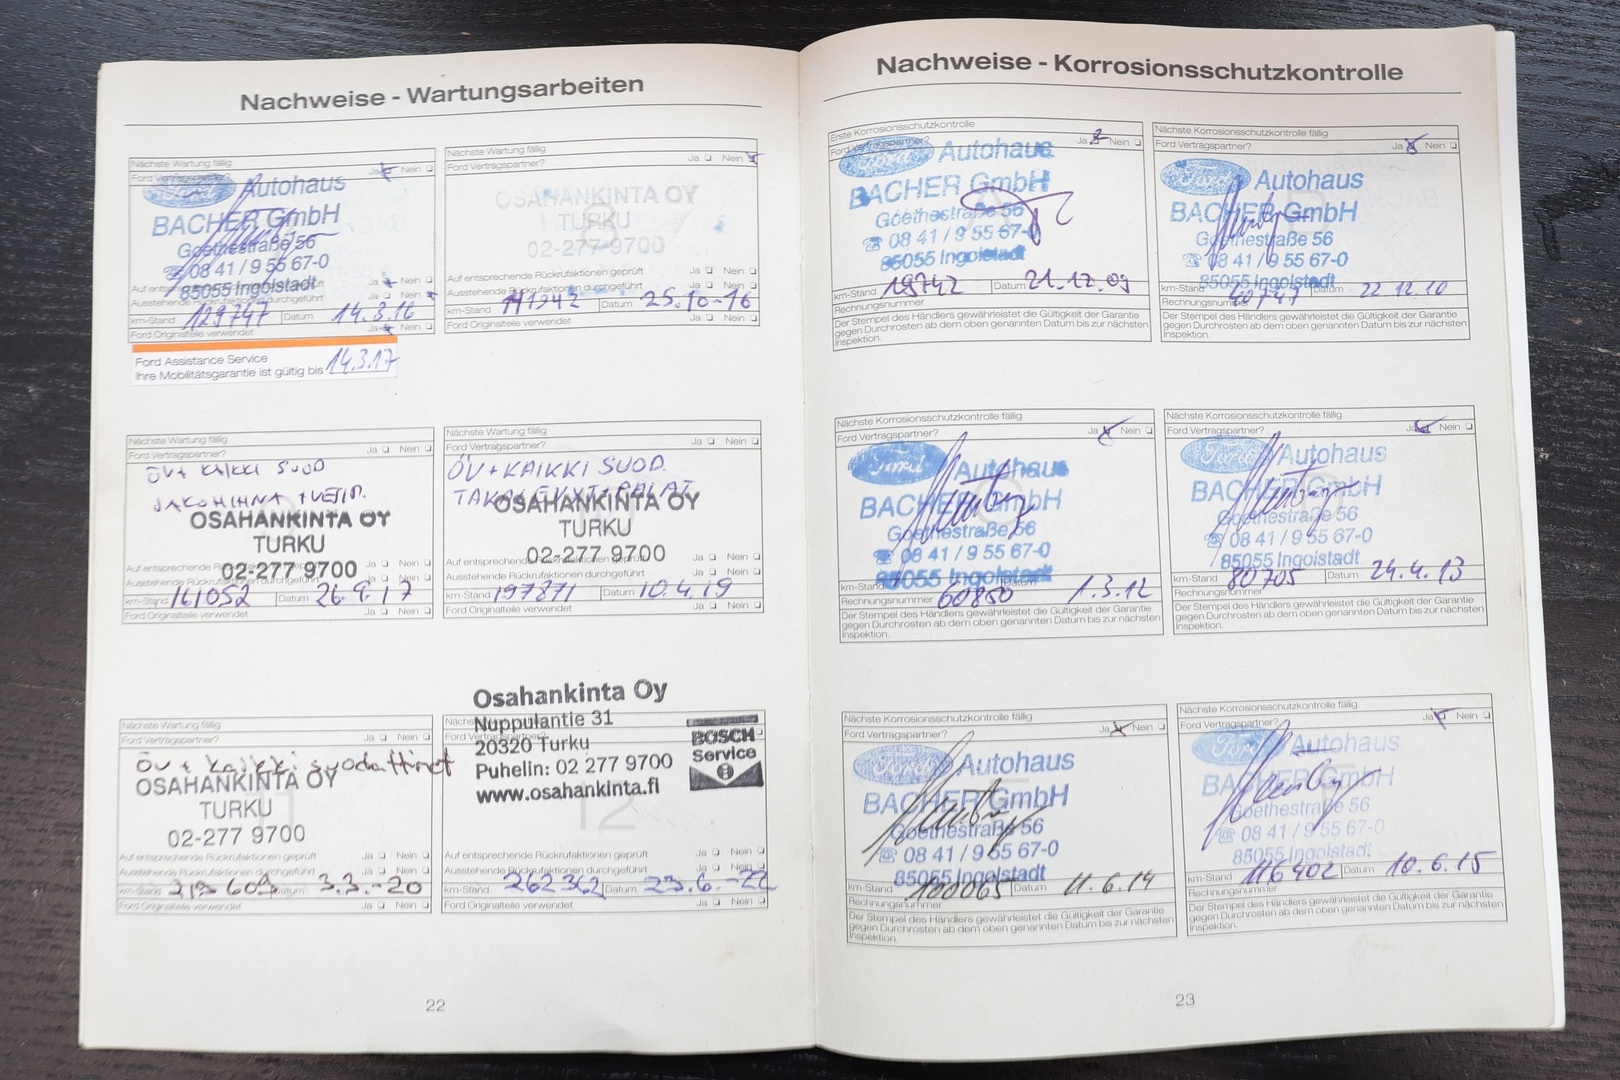 Nachweise - Wartungsarbeiten
Nächste Wartung fällig
Ford Vertragspartner? Ja Nein
Ford Autohaus
BACHER GmbH
Goethestraße 56
08 41 / 9 55 67-0
85055 Ingolstadt
Ausstehende Rückrufaktionen durchgeführt Ja Nein
km-Stand 129747 Datum 14.3.16
Ford Originalteile verwendet Ja
Ford Assistance Service
Ihre Mobilitätsgarantie ist gültig bis 14.3.17
Nächste Wartung fällig
Ford Vertragspartner? Ja Nein
OSAHANKINTA OY
TURKU
02-277-9700
Auf entsprechende Rückrufaktionen geprüft Ja Nein
Ausstehende Rückrufaktionen durchgeführt Ja Nein
km-Stand Datum 25.10-16
Ford Originalteile verwendet Ja Nein
Nächste Wartung fällig
Ford Vertragspartner? Ja Nein
ÖV+ KAIKKI SUOD
JAKOHIHNA + VETIP.
OSAHANKINTA OY
TURKU
02-277 9700
Auf entsprechende Rückrufaktionen geprüft Ja Nein
Ausstehende Rückrufaktionen durchgeführt Ja Nein
km-Stand 161052 Datum 26.9.17
Ford Originalteile verwendet Ja Nein
Nächste Wartung fällig
Ford Vertragspartner? Ja Nein
ÖV+KAIKKI SUOD.
OSAHANKINTA OY
TURKU
02-277 9700
Auf entsprechende Rückrufaktionen geprüft Ja Nein
Ausstehende Rückrufaktionen durchgeführt Ja Nein
km-Stand 197871 Datum 10.4.19
Ford Originalteile verwendet Ja Nein
Nächste Wartung fällig
Ford Vertragspartner? Ja Nein
öv + kaikki suodattimet
OSAHANKINTA OY
TURKU
02-277 9700
Auf entsprechende Rückrufaktionen geprüft Ja Nein
Ausstehende Rückrufaktionen durchgeführt Ja Nein
km-Stand Datum 3.3.-20
Ford Originalteile verwendet Ja Nein
Osahankinta Oy
Nuppulantie 31
20320 Turku
Puhelin: 02 277 9700
www.osahankinta.fi
BOSCH
Service
12
Auf entsprechende Rückrufaktionen geprüft Ja Nein
Ausstehende Rückrufaktionen durchgeführt Ja Nein
km-Stand 262362 Datum 23.6.-22
Ford Originalteile verwendet Ja Nein
22
Nachweise - Korrosionsschutzkontrolle
Erste Korrosionsschutzkontrolle
Ford Vertragspartner? Ja Nein
Ford Autohaus
BACHER GmbH
Goethestraße 56
08 41 / 9 55 67-0
85055 Ingolstadt
km-Stand 19742 Datum 21.12.09
Rechnungsnummer
Der Stempel des Händlers gewährleistet die Gültigkeit der Garantie
gegen Durchrosten ab dem oben genannten Datum bis zur nächsten
Inspektion.
Nächste Korrosionsschutzkontrolle fällig
Ford Vertragspartner? Ja Nein
Ford Autohaus
BACHER GmbH
Goethestraße 56
08 41 / 9 55 67-0
85055 Ingolstadt
km-Stand 40747 Datum 22.12.10
Rechnungsnummer
Der Stempel des Händlers gewährleistet die Gültigkeit der Garantie
gegen Durchrosten ab dem oben genannten Datum bis zur nächsten
Inspektion.
Nächste Korrosionsschutzkontrolle fällig
Ford Vertragspartner? Ja Nein
Ford Autohaus
BACHER GmbH
Goethestraße 56
08 41 / 9 55 67-0
85055 Ingolstadt
km-Stand Datum
Rechnungsnummer 60850 1.3.12
Der Stempel des Händlers gewährleistet die Gültigkeit der Garantie
gegen Durchrosten ab dem oben genannten Datum bis zur nächsten
Inspektion.
Nächste Korrosionsschutzkontrolle fällig
Ford Vertragspartner? Ja Nein
Ford Autohaus
BACHER GmbH
Goethestraße 56
08 41 / 9 55 67-0
85055 Ingolstadt
km-Stand 80705 Datum 24.4.13
Rechnungsnummer
Der Stempel des Händlers gewährleistet die Gültigkeit der Garantie
gegen Durchrosten ab dem oben genannten Datum bis zur nächsten
Inspektion.
Nächste Korrosionsschutzkontrolle fällig
Ford Vertragspartner? Ja Nein
Ford Autohaus
BACHER GmbH
Goethestraße 56
08 41 / 9 55 67-0
85055 Ingolstadt
km-Stand 100065 Datum 11.6.14
Rechnungsnummer
Der Stempel des Händlers gewährleistet die Gültigkeit der Garantie
gegen Durchrosten ab dem oben genannten Datum bis zur nächsten
Inspektion.
Nächste Korrosionsschutzkontrolle fällig
Ford Vertragspartner? Ja Nein
Ford Autohaus
BACHER GmbH
Goethestraße 56
08 41 / 9 55 67-0
85055 Ingolstadt
km-Stand 116402 Datum 10.6.15
Rechnungsnummer
Der Stempel des Händlers gewährleistet die Gültigkeit der Garantie
gegen Durchrosten ab dem oben genannten Datum bis zur nächsten
Inspektion.
23